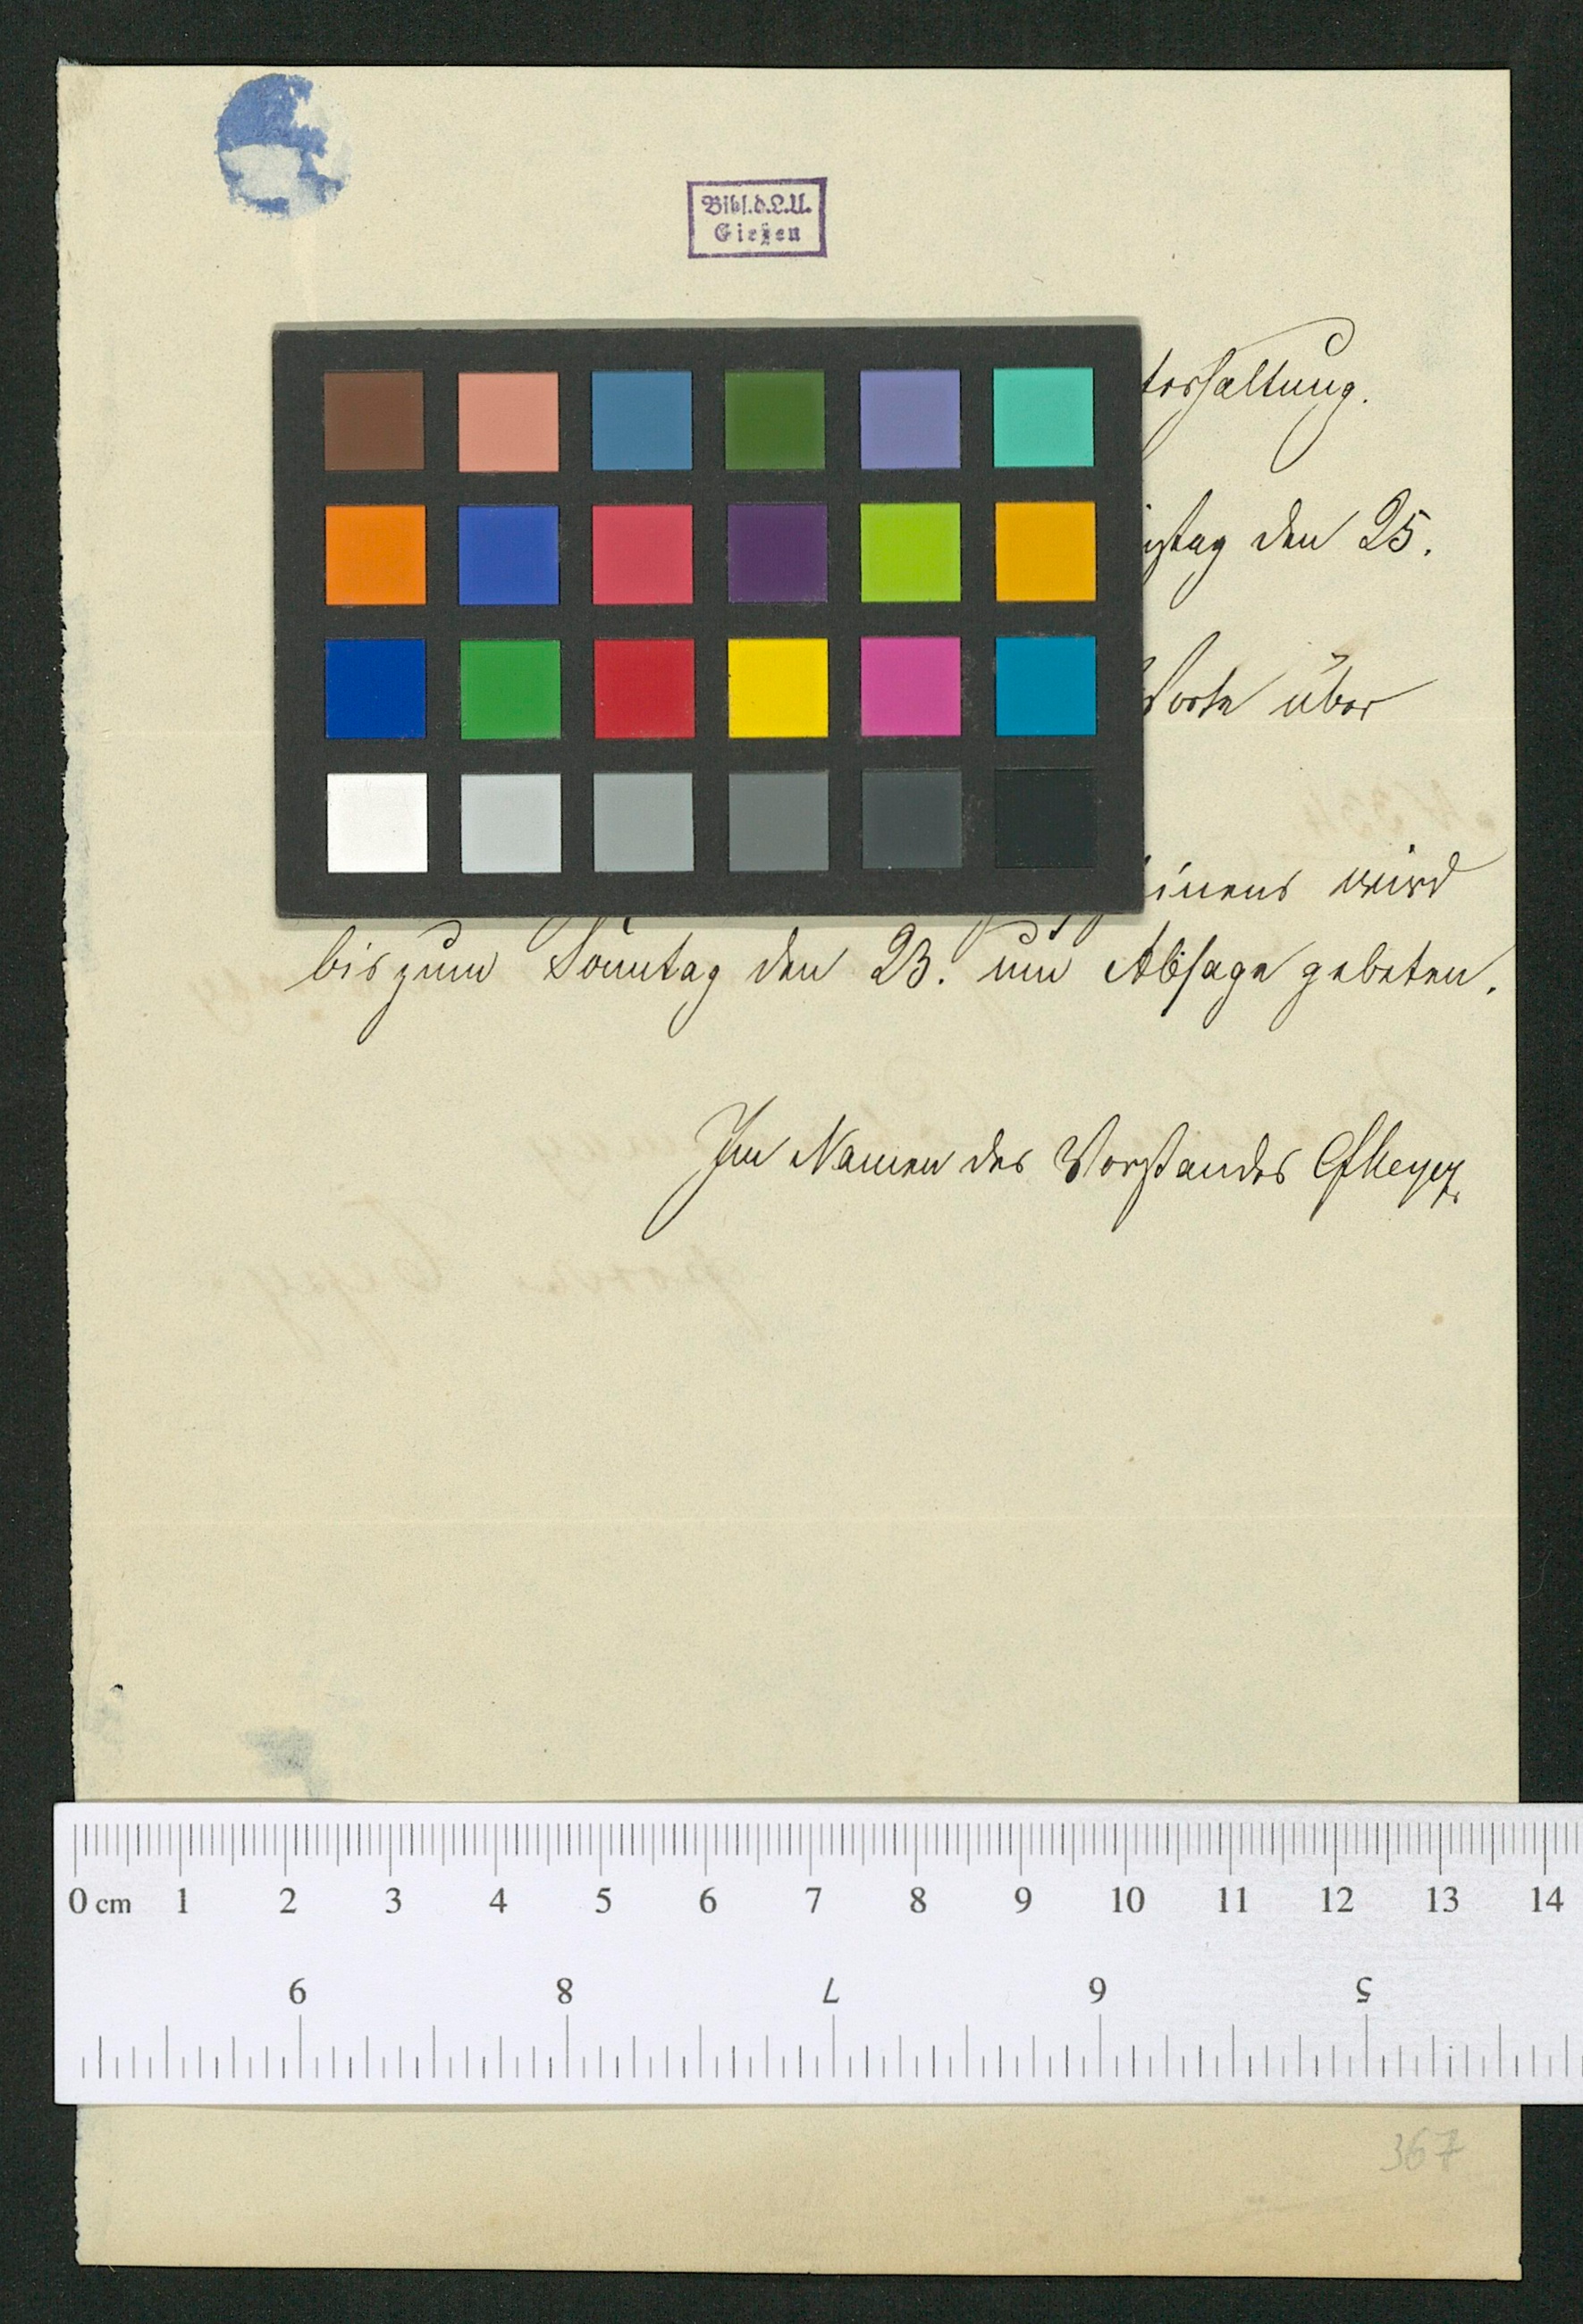 Bibl.d.L.U.
Gießen
terhaltung.
stag den 25.
Worte über
inens wird
bis zum Sonntag den 23. um Absage gebeten.
Im Namen des Vorstandes
0 cm 1 2 3 4 5 6 7 8 9 10 11 12 13 14
9 8 7 6 5
367